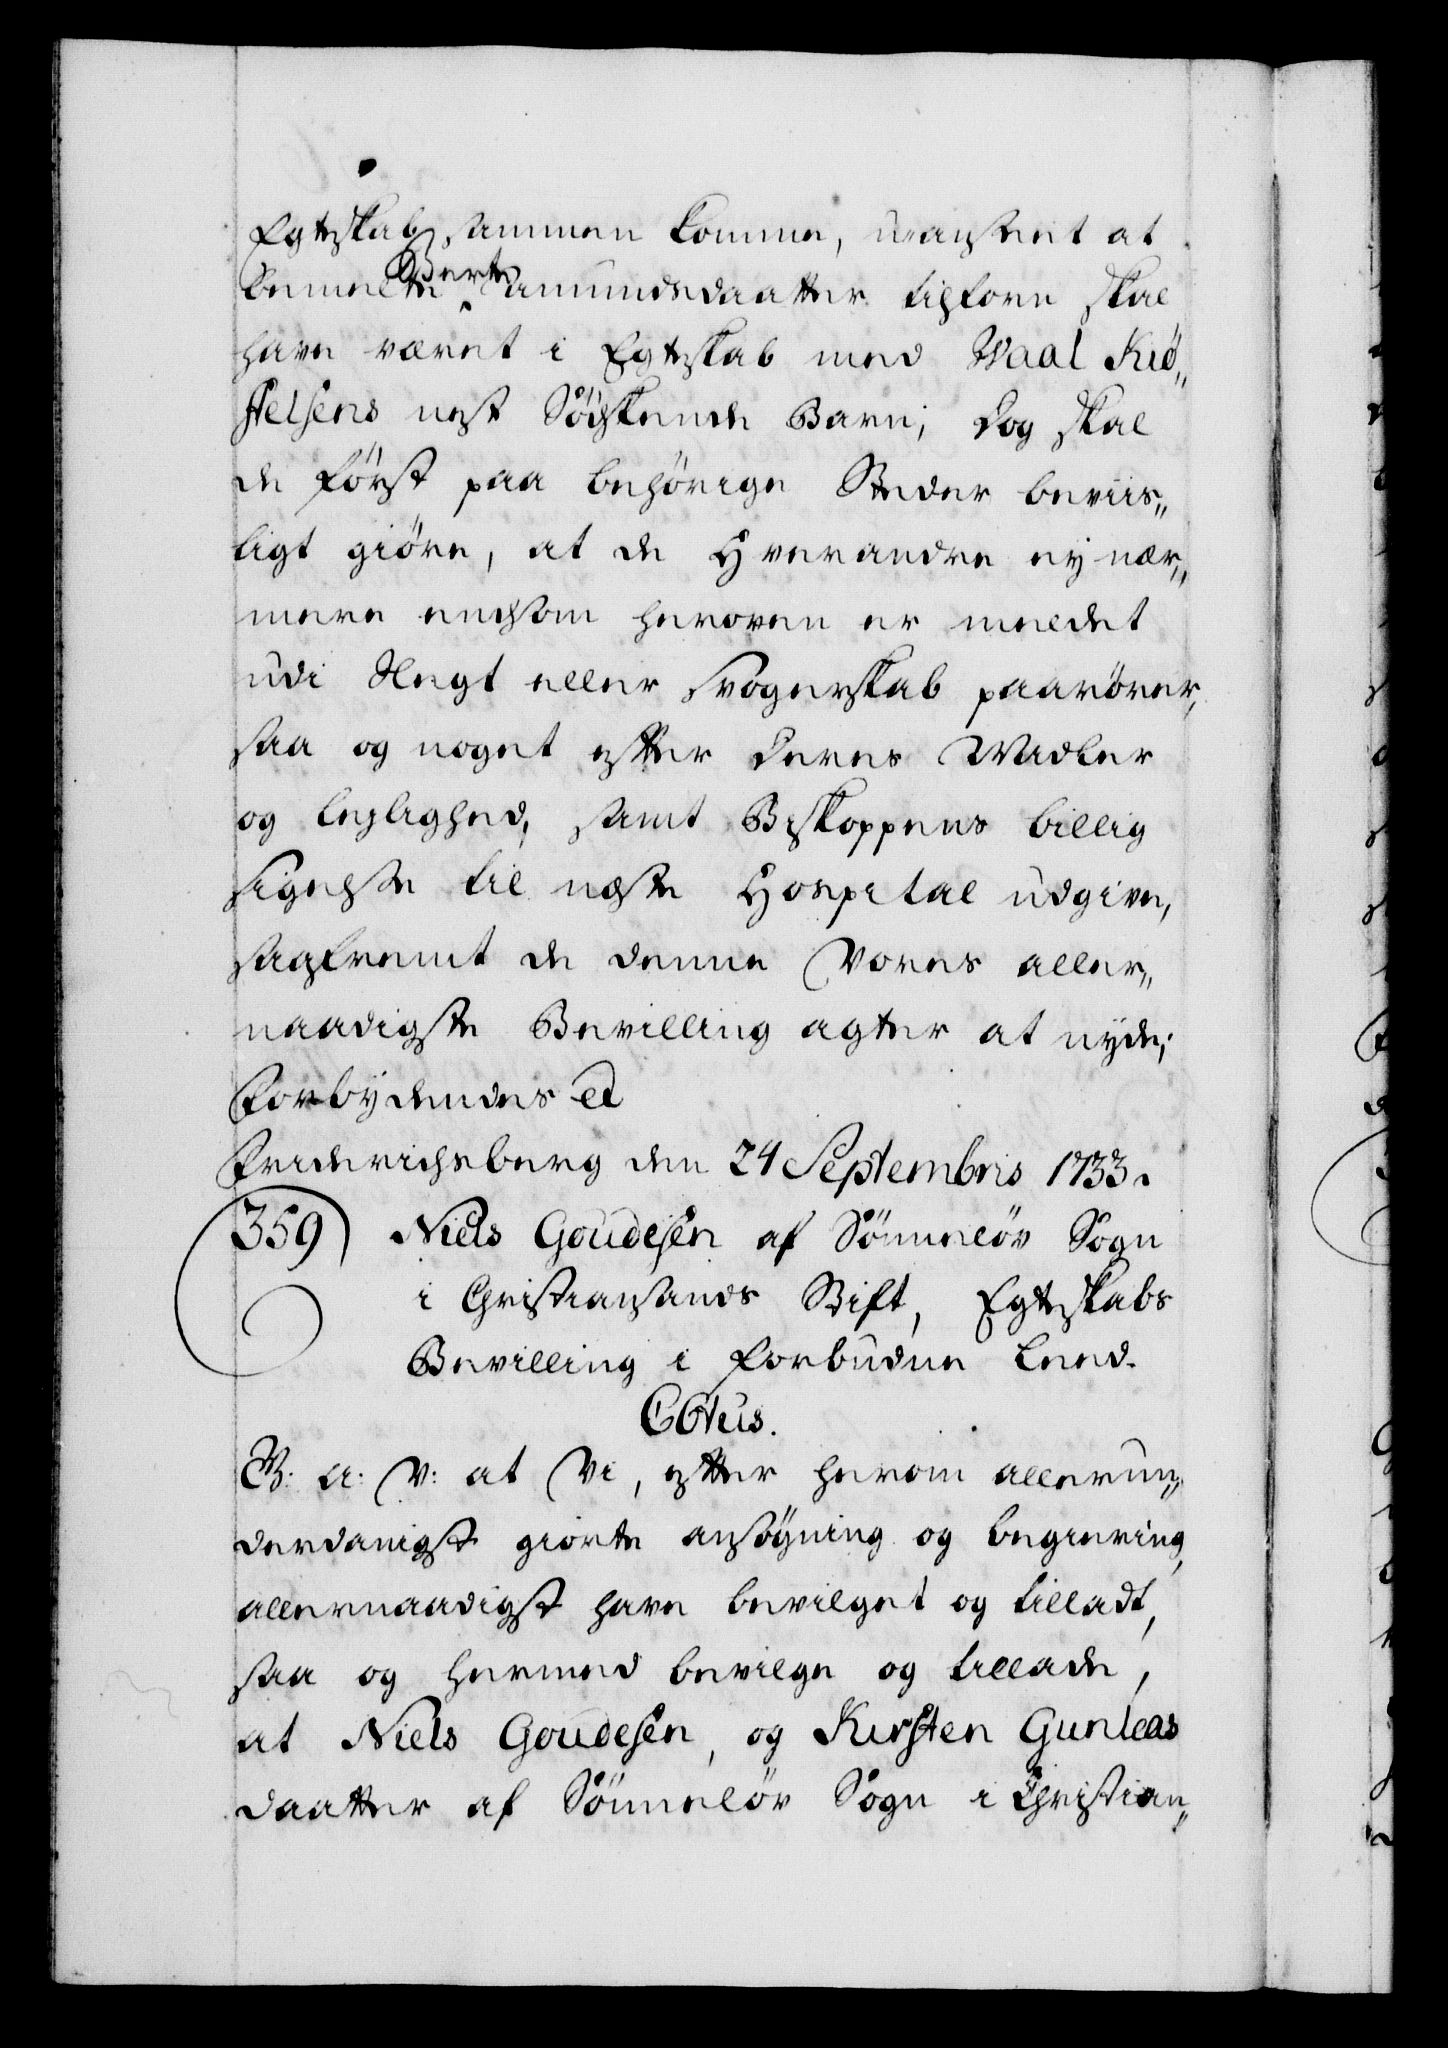 Egteskab sammen komme, uanseet at
bemelte Berte Amundsdaatter tilforn skal
have været i Egteskab med Waal Kiø„
stelsens nest Södskende Barn; Dog skal
de först paa behörige Steder beviis„
ligt giöre, at de Hverandre ey nær„
mere endsom heroven er meldet
udi Slegt eller Svogerskab paarörer,
saa og noget efter deres Midler
og lejlighed, samt Biskoppens billig
sigelse til neste Hospital udgive,
saafremt de denne Vores aller„
naadigste Bevilling agter at nyde;
Forbydendes etc
Friderichsberg den 24 Septembris 1733.
359) Niels Goudesen af Sönneløv Sogn
i Christiansands Stift, Egteskabs
Bevilling i forbudne Leed.
C6tus.
G: A: V: at Vi, efter herom allerun„
derdanigst giorte ansøgning og begiering,
allernaadigst have bevilget og tilladt,
saa og hermed bevilge og tillade,
at Niels Goudesen, og Kirsten Gunleas
daatter af Sönneløv Sogn i Christian„